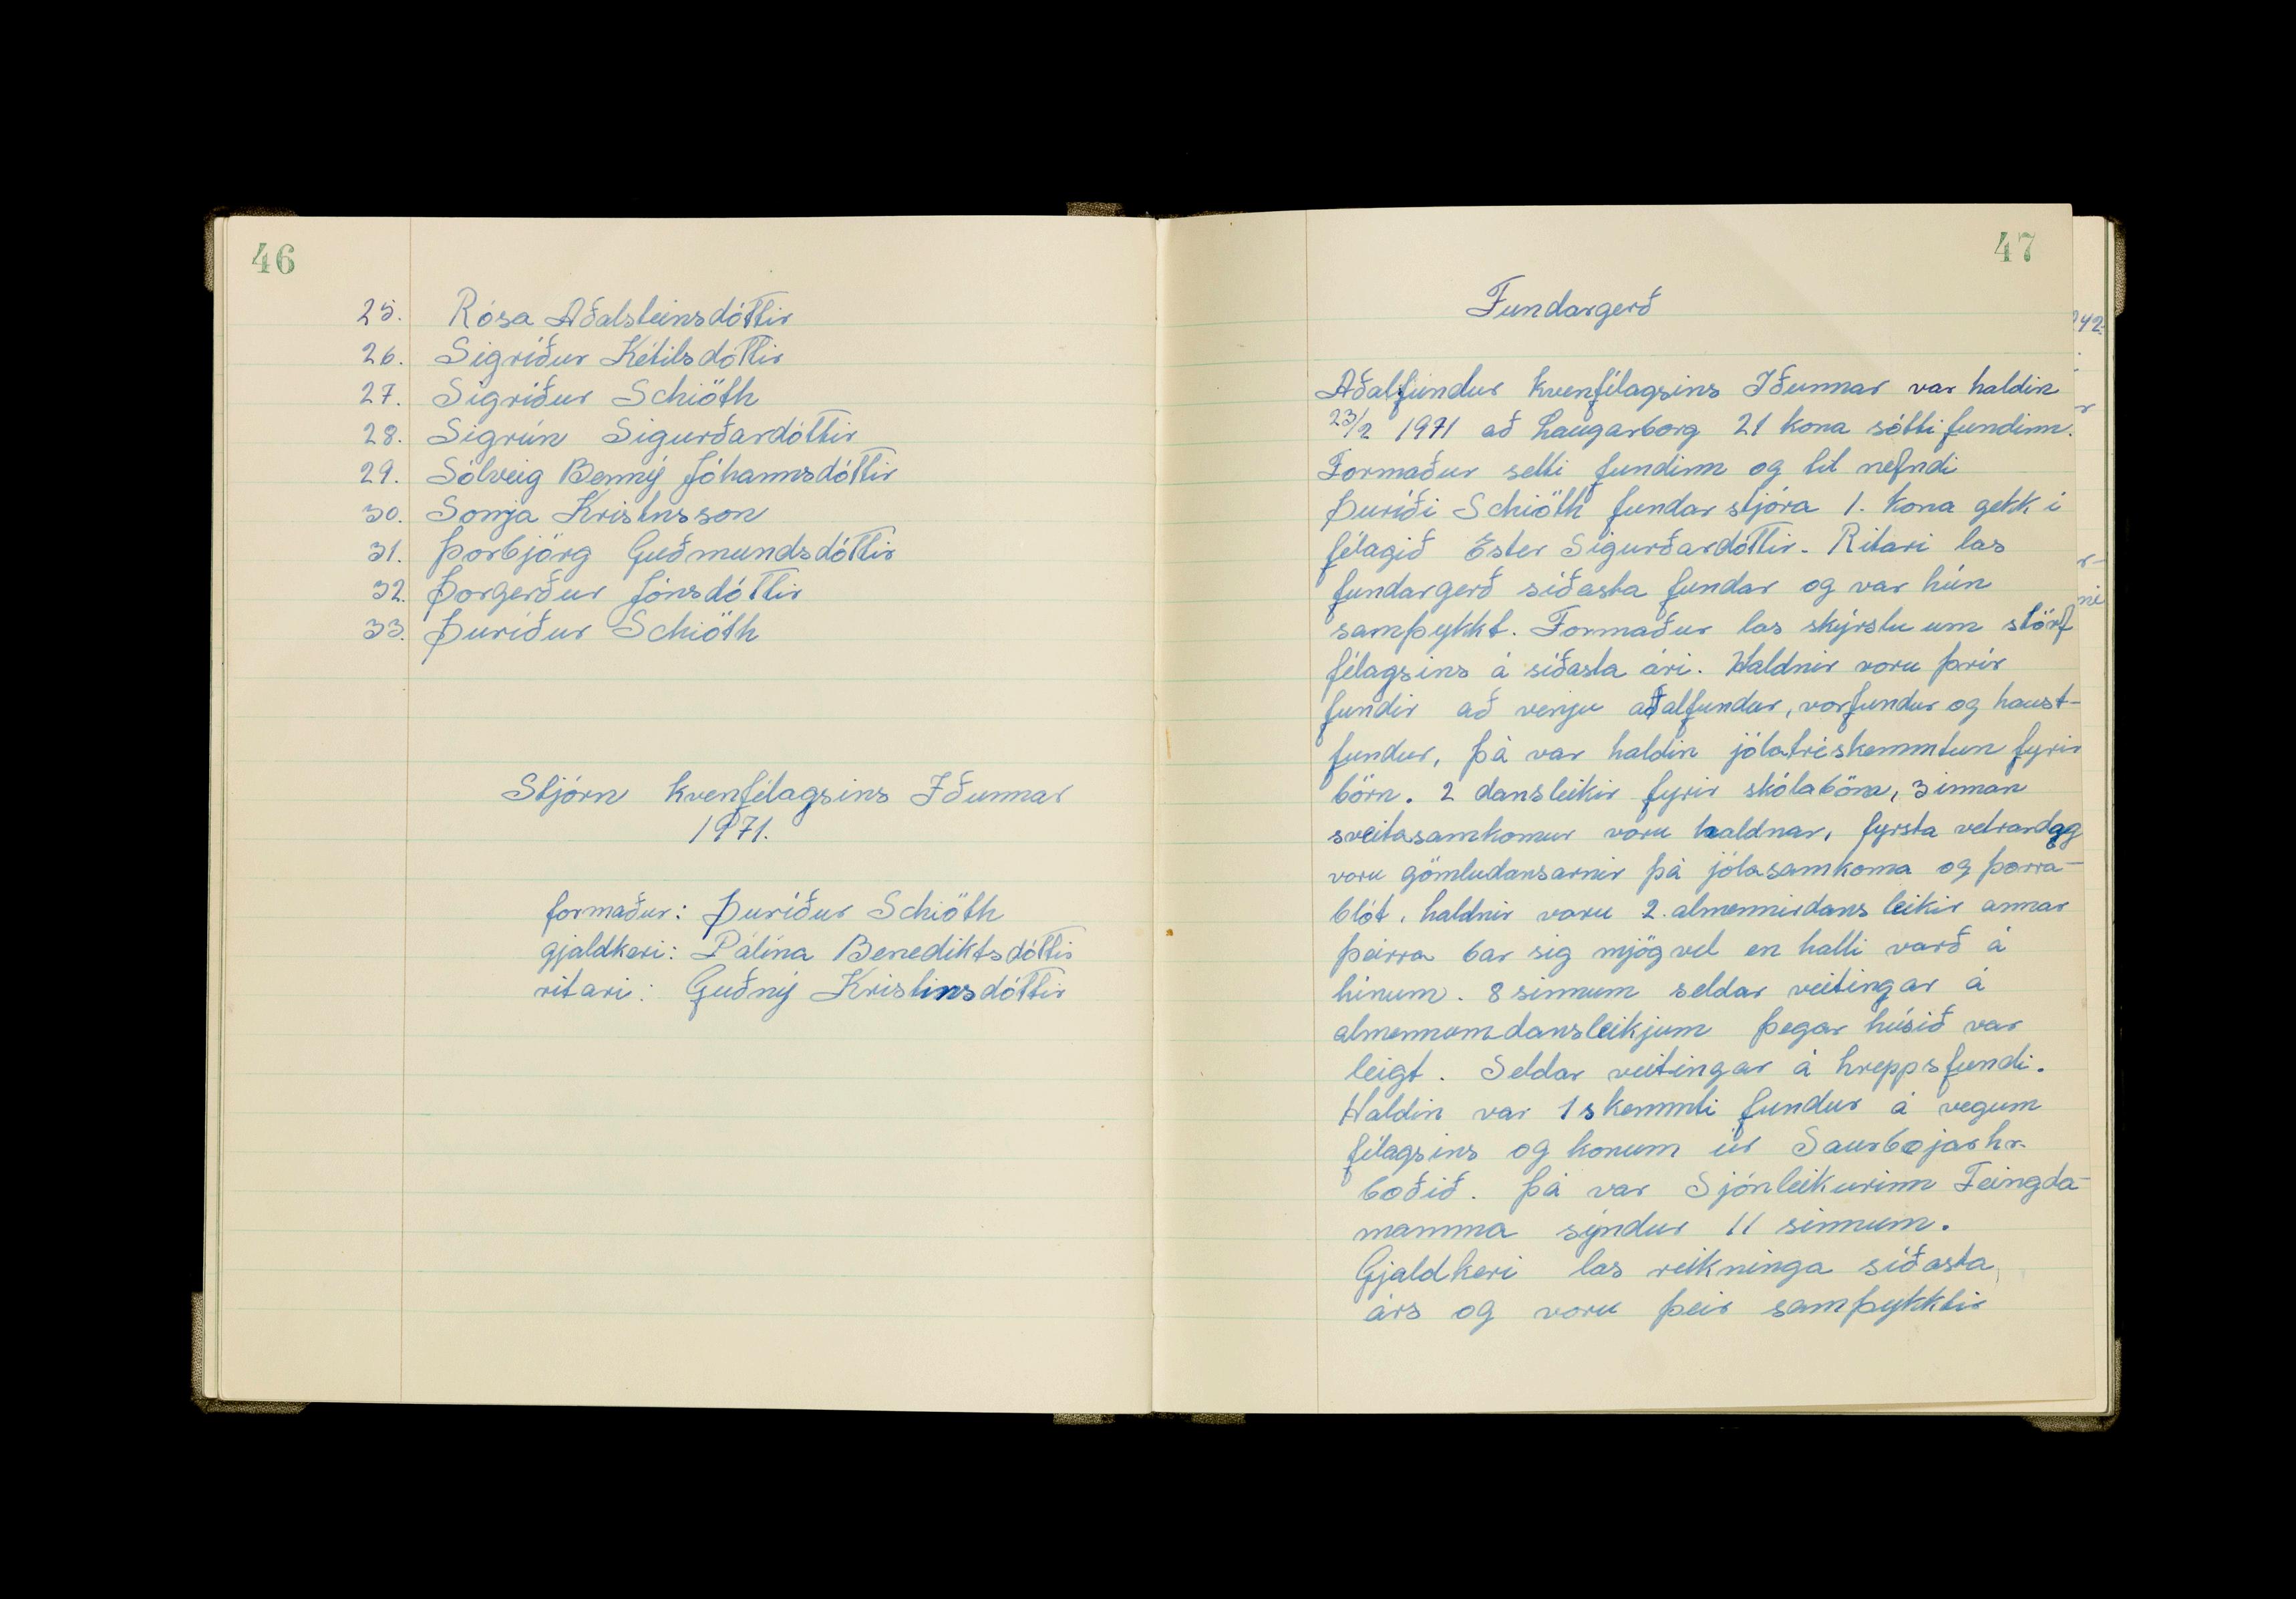 46
25. Rósa Aðalsteinsdóttir
26. Sigríður Ketilsdóttir
27. Sigríður Schiöth
28. Sigrún Sigurðardóttir
29. Sólveig Benný Jóhannsdóttir
30. Sonja Kristnsson
31. Þorbjörg Guðmundsdóttir
32. Þorgerður Jónsdóttir
33. Þuríður Schiöth
Stjórn kvenfélagsins Iðunnar
1971.
formaður: Þuríður Schiöth
gjaldkeri: Pálína Benediktsdóttir
ritari: Guðný Kristinsdóttir
47
Fundargerð
Aðalfundur kvenfélagsins Iðunnar var haldin
23/2 1971 að Laugarborg 21 kona sótti fundinn.
Formaður setti fundinn og til nefndi
Þuríði Schiöth fundar stjóra 1. kona gekk í
félagið Ester Sigurðardóttir. Ritari las
fundargerð síðasta fundar og var hún
samþykkt. Formaður las skýrslu um störf
félagsins á síðasta ári. Haldnir voru þrír
fundir að venju aðalfundur, vorfundur og haust-
fundur, þá var haldin jólatréskemmtun fyrir
börn. 2 dansleikir fyrir skólabörn, 3 innan
sveitasamkomur voru haldnar, fyrsta vetrardag
voru gömludansarnir þá jólasamkoma og þorra-
blót. haldnir voru 2. almennirdans leikir annar
þeirra bar sig mjög vel en halli varð á
hinum. 8 sinnum seldar veitingar á
almennumdansleikjum þegar húsið var
leigt. Seldar veitingar á hreppsfundi.
Haldin var 1 skemmti fundur á vegum
félagsins og konum úr Saurbæjarhr.
boðið. Þá var Sjónleikurinn Teingda-
mamma sýndur 11 sinnum.
Gjaldkeri las reikninga síðasta
árs og voru þeir samþykktir